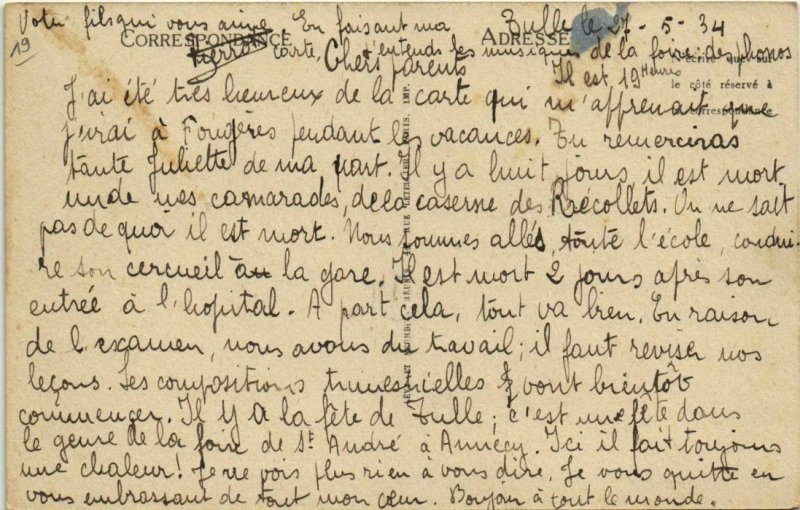 Votre fils qui vous aime En faisant ma Tulle le 27-5-34
19
CORRESPONDANCE ADRESSE
Pierrot carte, j'entends les musiques de la foire: des phonos
Chers parents Il est 19 Heures
le côté réservé à
correspondance
J'ai été très heureux de la carte qui m'apprenait que
j'irai à Fougères pendant les vacances. Tu remercieras
tante Juliette de ma part. Il y a huit jours, il est mort
un de mes camarades, de la caserne des Récollets. On ne sait
pas de quoi il est mort. Nous sommes allés, toute l'école, condui-
re son cercueil à la gare. Il est mort 2 jours après son
entrée à l'hopital. A part cela, tout va bien. En raison
de l'examen, nous avons du travail; il faut reviser nos
leçons. Les compositions trimestrielles vont bientôt
commencer. Il y a la fête de Tulle; c'est une fête dans
le genre de la foire de St André à Annecy. Ici il fait toujours
une chaleur! Je ne vois plus rien à vous dire. Je vous quitte en
vous embrassant de tout mon cœur. Bonjour à tout le monde.